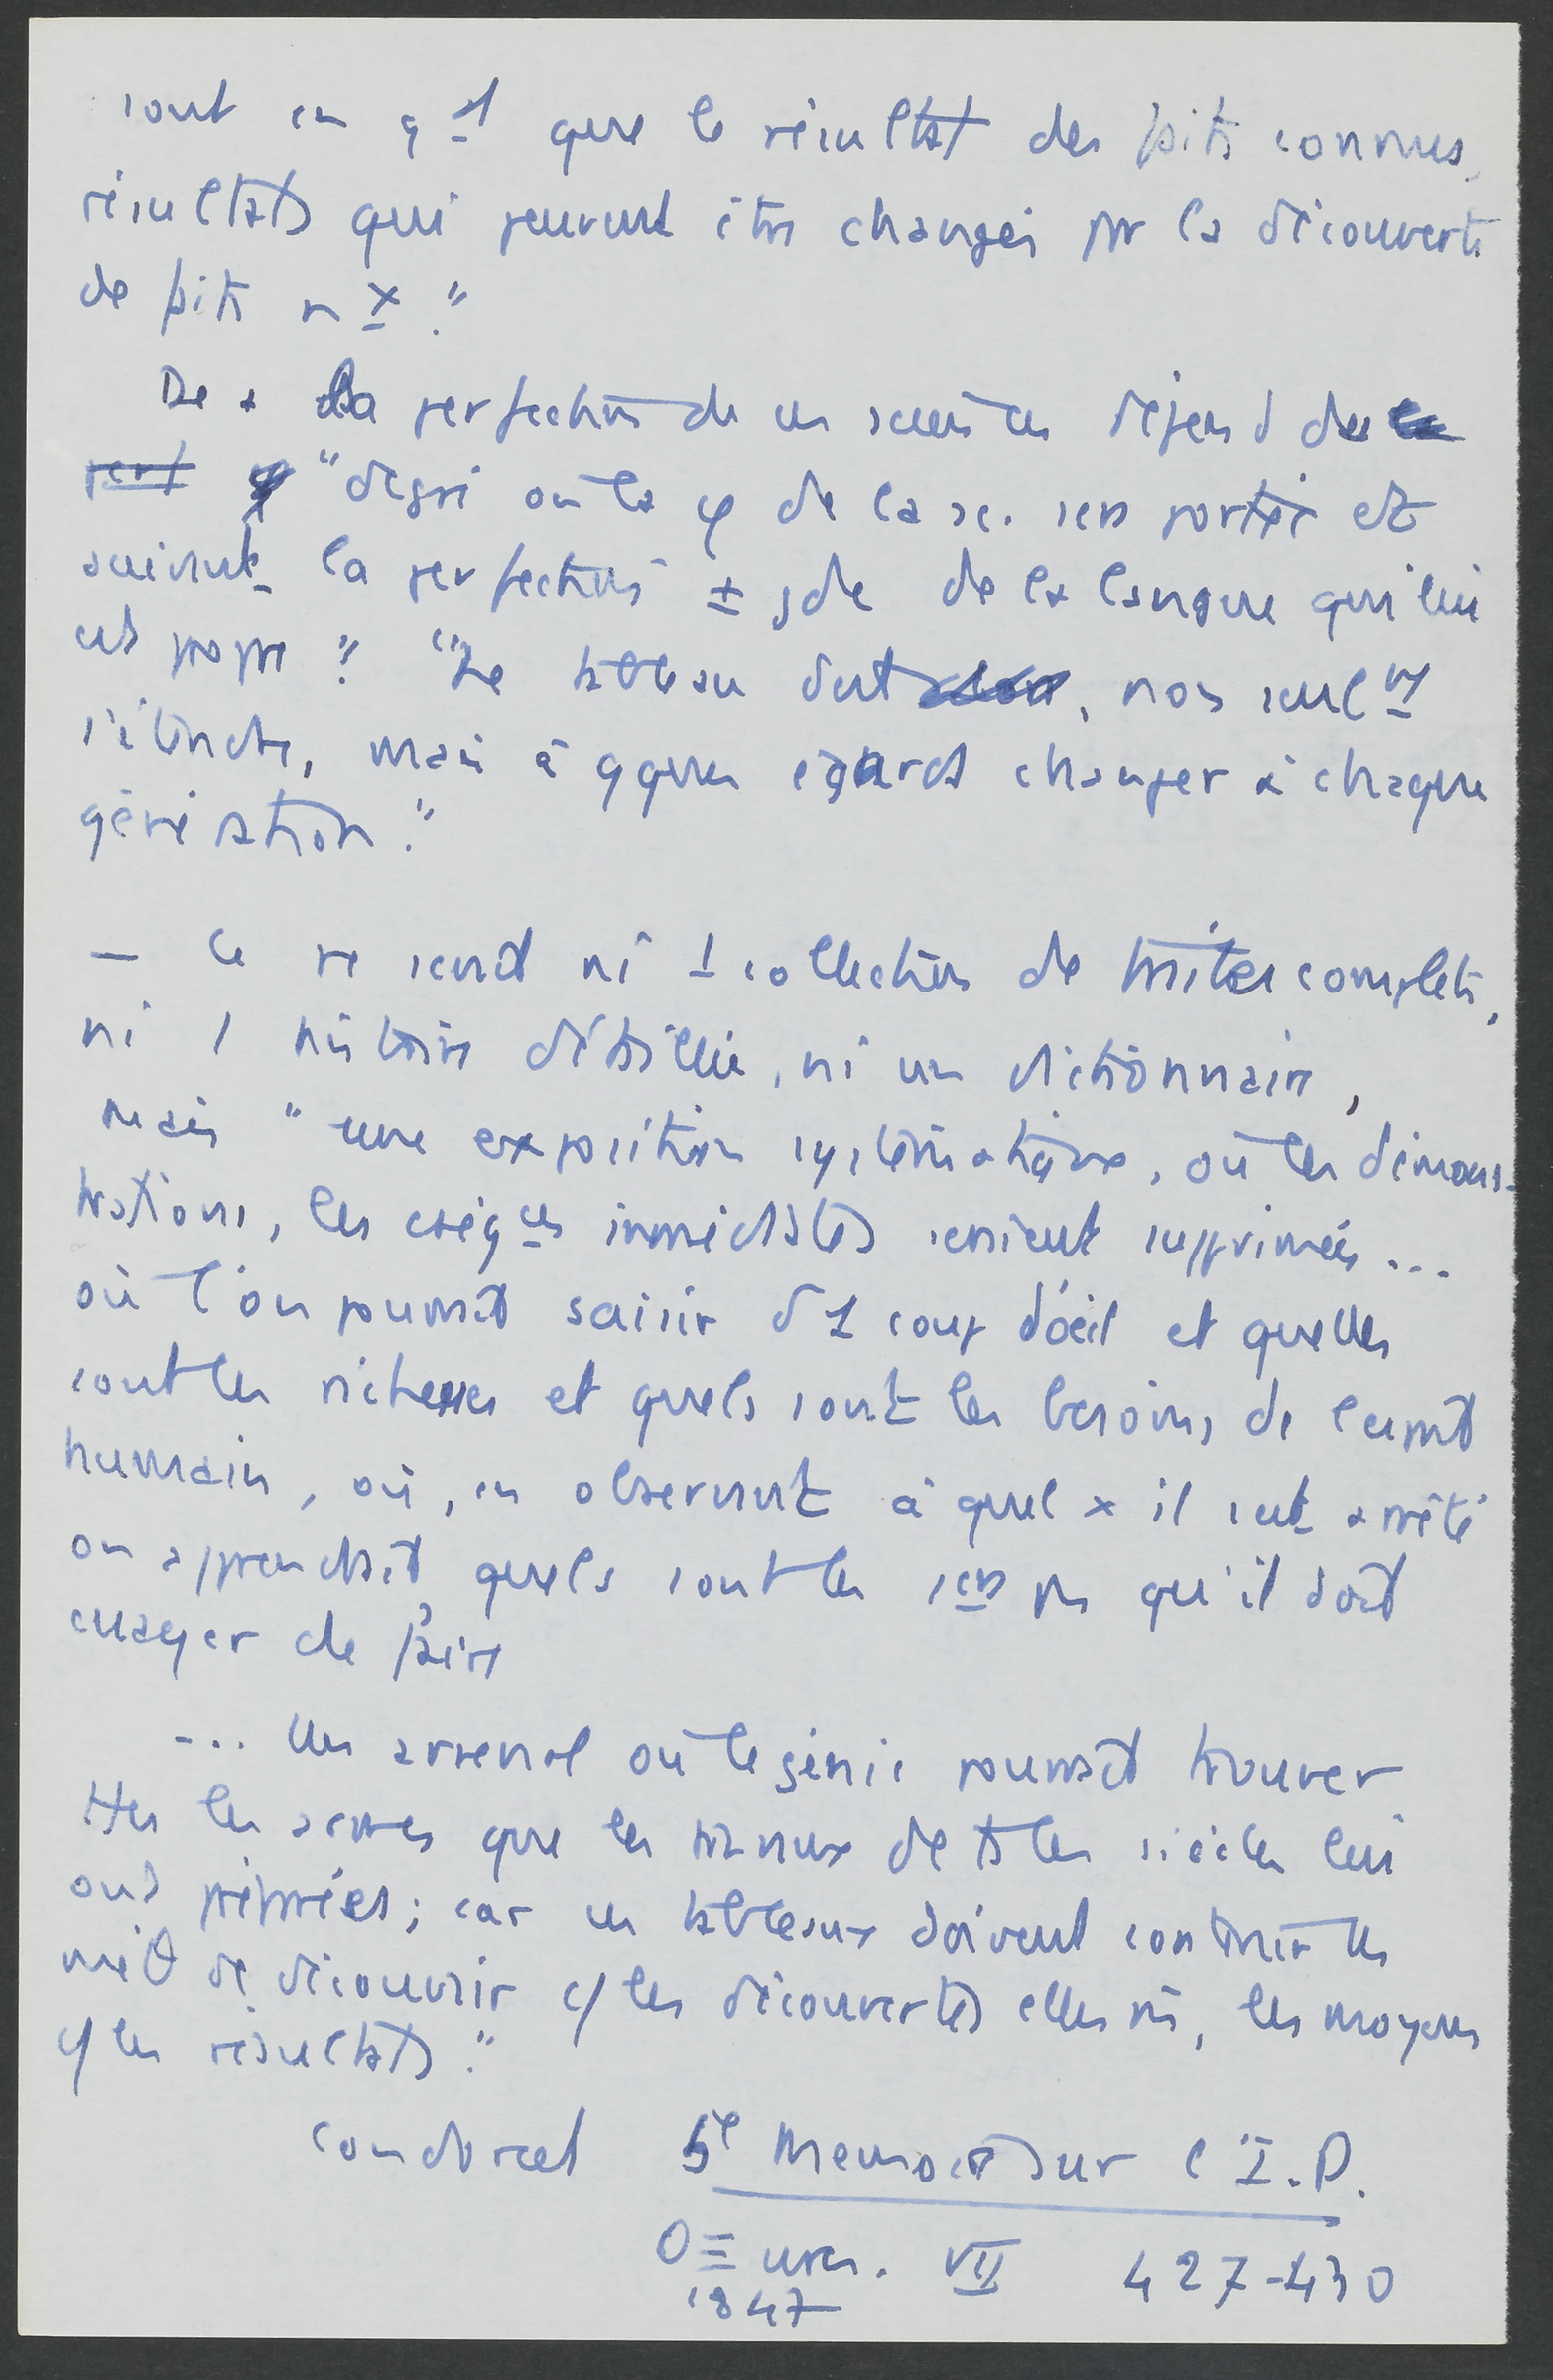 sont en q 1 que le résultat des faits connus,
résultats qui peuvent être changés pr la découverte
de faits nx."
De + la perfection de ces scences dépend du
"degré où la φ de la sc. sera portée et
suivant la perfection ± gde de la langue qui lui
est propre". "Le tableau doit, non seult
s'étendre, mais à qques égards changer à chaque
génération."
— Ce ne serait ni 1 collection de traités complets,
ni 1 histoire détaillée, ni un dictionnaire,
mais "une exposition systématique, où les démons-
trations, les cséqces immédiates seraient supprimées...
où l'on pourrait saisir d'1 coup d'œil et quelles
sont les richesses et quels sont les besoins de l'esprit
humain, où, en observant à quel x il s'est arrêté
on apprendrait quels sont les 1ers pas qu'il doit
essayer de faire
... Un arsenal où le génie pourrait trouver
ttes les armes que les travaux de ts les siècles lui
ont préparées; car ces tableaux doivent contenir les
méth de découvrir c/ les découvertes elles mês, les moyens
c/ les résultats."
Condorcet 5e Memoire sur l'I.P.
Oeuvres. VII 427-430
1847